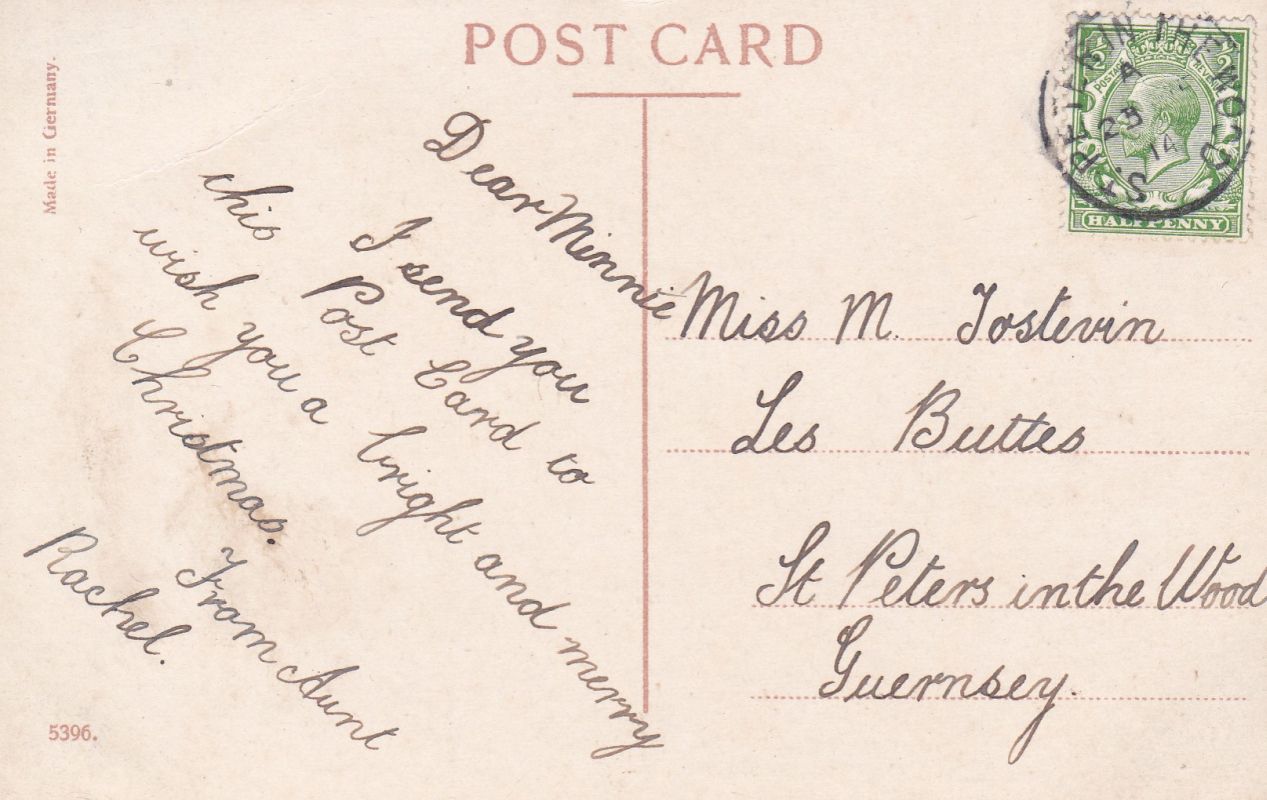 POST CARD
Made in Germany.
Dear Minnie
I send you
this Post Card to
wish you a bright and merry
Christmas.
From Aunt
Rachel.
5396.
Miss M. Tostevin
Les Buttes
St Peters in the Wood
Guernsey.
ST. PETER IN THE WOOD
A
23
14
½ ½
POSTAGE REVENUE
HALFPENNY